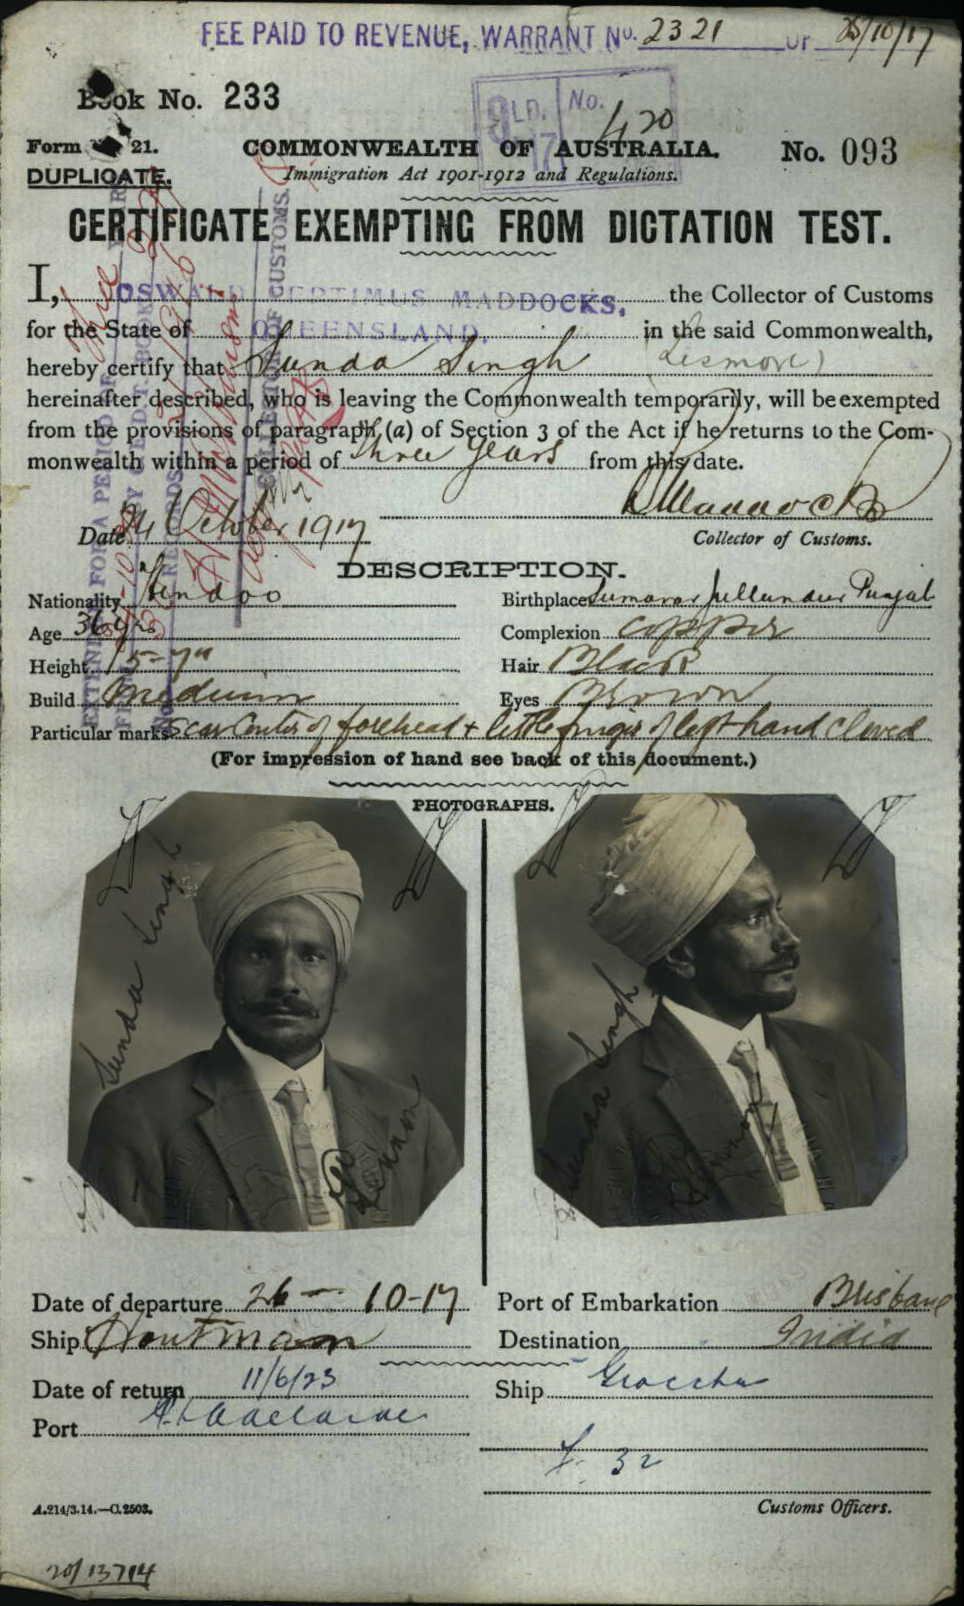 FEE PAID TO REVENUE, WARRANT No. 2321 OF 25/10/17
Book No. 233
QLD. No. 420
17
Form 21. COMMONWEALTH OF AUSTRALIA. No. 093
DUPLICATE. Immigration Act 1901-1912 and Regulations.
CERTIFICATE EXEMPTING FROM DICTATION TEST.
I, OSWALD SEPTIMUS MADDOCKS, the Collector of Customs
for the State of QUEENSLAND, in the said Commonwealth,
hereby certify that Sunda Singh (Lismore)
hereinafter described, who is leaving the Commonwealth temporarily, will be exempted
from the provisions of paragraph (a) of Section 3 of the Act if he returns to the Com-
monwealth within a period of three years from this date.
Date 24 October 1917
Collector of Customs.
EXTENDED FOR A PERIOD OF
COLLECTOR OF CUSTOMS.
RECORDS
DESCRIPTION.
Nationality Hindoo Birthplace Jullundur Punjab
Age 36 yrs Complexion Copper
Height 5-7" Hair Black
Build Medium Eyes Brown
Particular marks Scar Center of forehead + little finger of left hand
(For impression of hand see back of this document.)
PHOTOGRAPHS.
Sunda Singh
Sunda Singh
Date of departure 26-10-17 Port of Embarkation Brisbane
Ship Houtman Destination India
Date of return 11/6/23 Ship
Port Pt Adelaide
32
A.214/3.14.—C.2503. Customs Officers.
20/13714